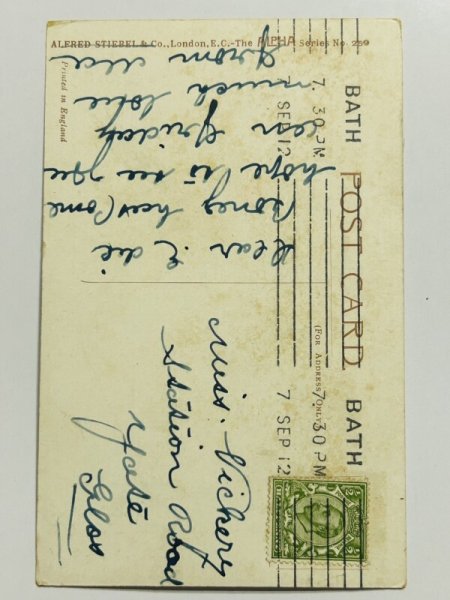 ALFRED STIEBEL & Co., London, E.C.-The ALPHA Series No.
Printed in England
POST CARD
(FOR ADDRESS ONLY)
BATH
7. 30 PM
7 SEP 12
BATH
7. 30 PM
7 SEP 12
Dear Edie
has Come
hope to see you
on Friday
much love
from Ma
Miss. Vickery
Station Road
Yate
Glos